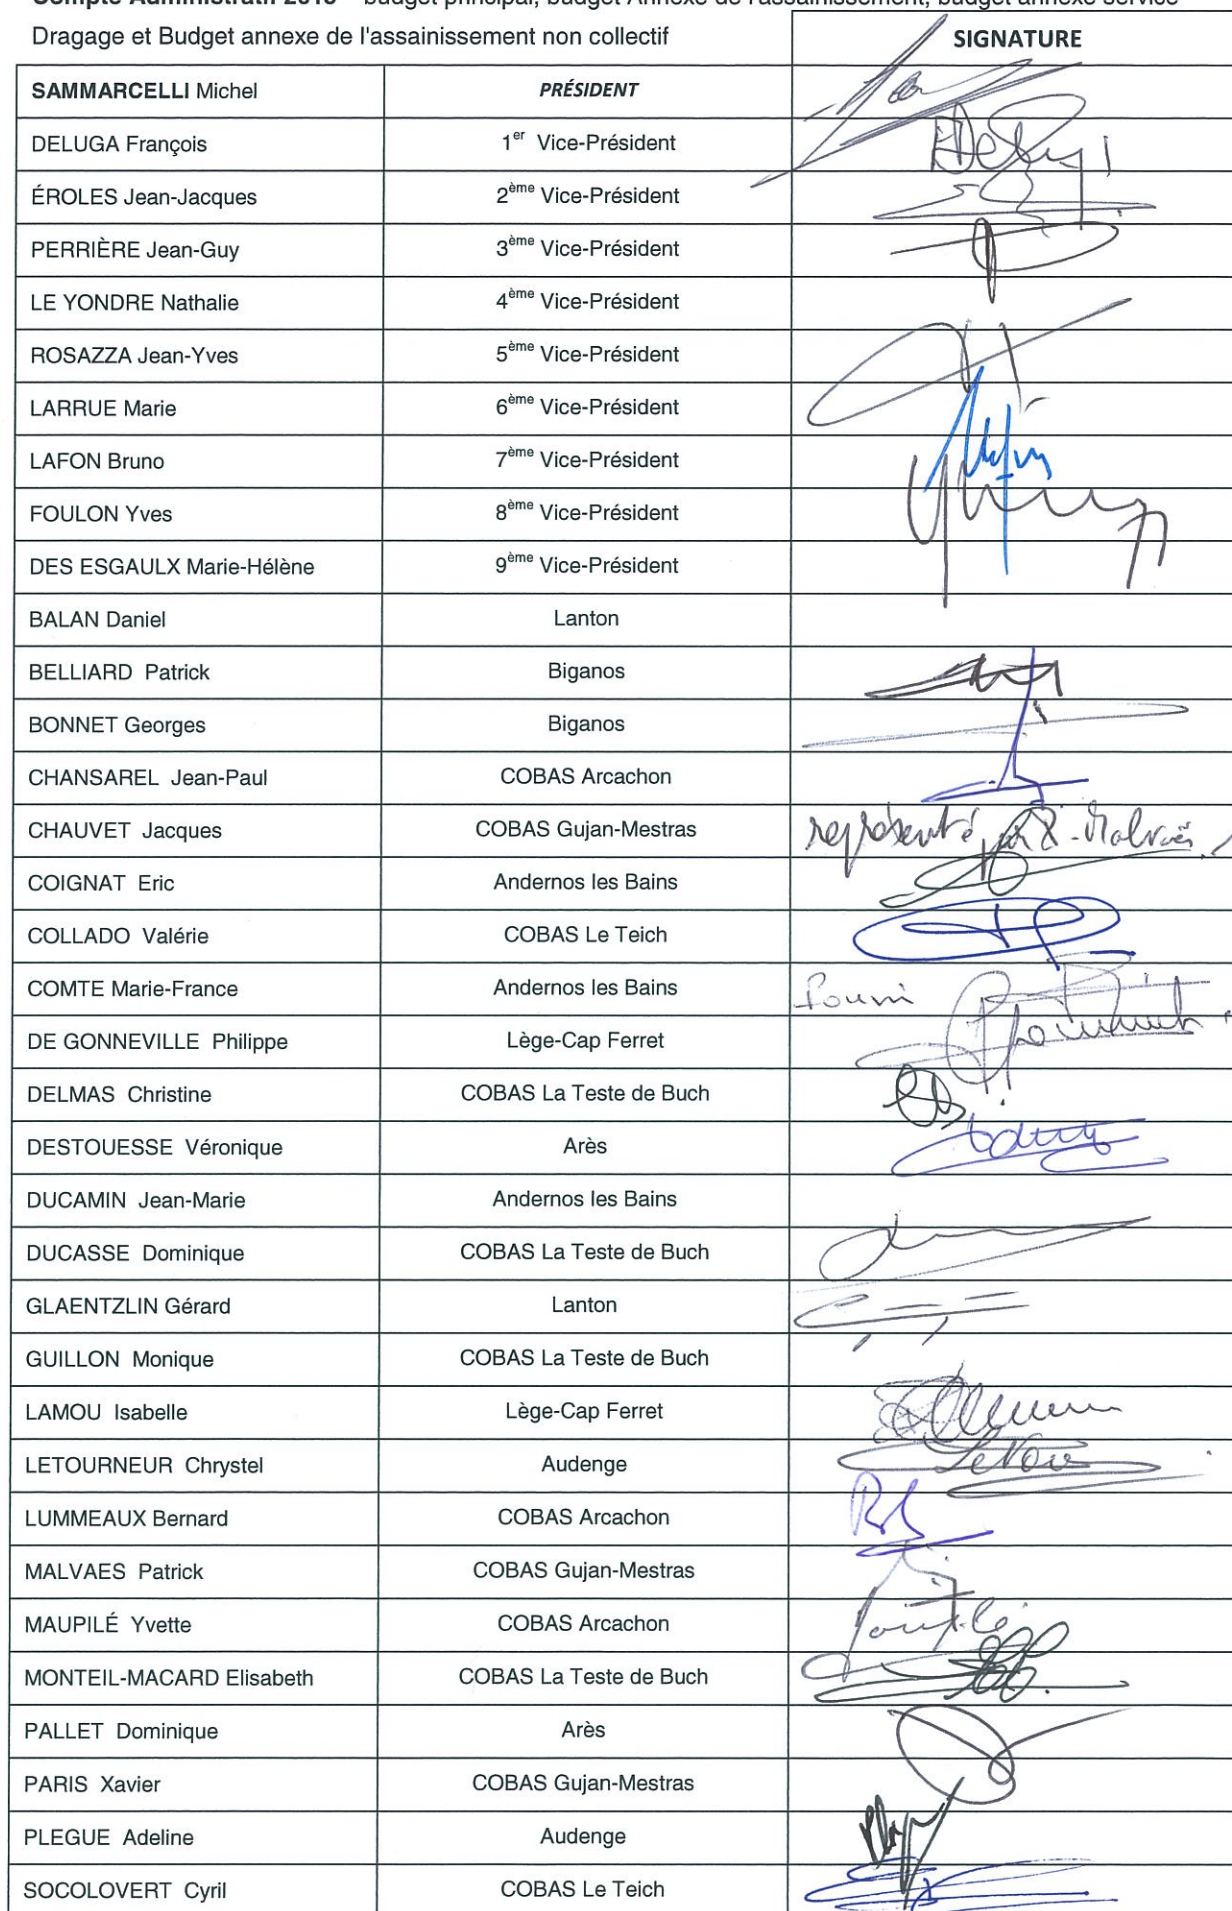 Compte Administratif 2015 - budget principal, budget Annexe de l'assainissement, budget annexe service
Dragage et Budget annexe de l'assainissement non collectif
SIGNATURE
SAMMARCELLI Michel PRÉSIDENT
DELUGA François 1er Vice-Président
ÉROLES Jean-Jacques 2ème Vice-Président
PERRIÈRE Jean-Guy 3ème Vice-Président
LE YONDRE Nathalie 4ème Vice-Président
ROSAZZA Jean-Yves 5ème Vice-Président
LARRUE Marie 6ème Vice-Président
LAFON Bruno 7ème Vice-Président
FOULON Yves 8ème Vice-Président
DES ESGAULX Marie-Hélène 9ème Vice-Président
BALAN Daniel Lanton
BELLIARD Patrick Biganos
BONNET Georges Biganos
CHANSAREL Jean-Paul COBAS Arcachon
CHAUVET Jacques COBAS Gujan-Mestras représenté
COIGNAT Eric Andernos les Bains
COLLADO Valérie COBAS Le Teich
COMTE Marie-France Andernos les Bains
DE GONNEVILLE Philippe Lège-Cap Ferret
DELMAS Christine COBAS La Teste de Buch
DESTOUESSE Véronique Arès
DUCAMIN Jean-Marie Andernos les Bains
DUCASSE Dominique COBAS La Teste de Buch
GLAENTZLIN Gérard Lanton
GUILLON Monique COBAS La Teste de Buch
LAMOU Isabelle Lège-Cap Ferret
LETOURNEUR Chrystel Audenge
LUMMEAUX Bernard COBAS Arcachon
MALVAES Patrick COBAS Gujan-Mestras
MAUPILÉ Yvette COBAS Arcachon
MONTEIL-MACARD Elisabeth COBAS La Teste de Buch
PALLET Dominique Arès
PARIS Xavier COBAS Gujan-Mestras
PLEGUE Adeline Audenge
SOCOLOVERT Cyril COBAS Le Teich